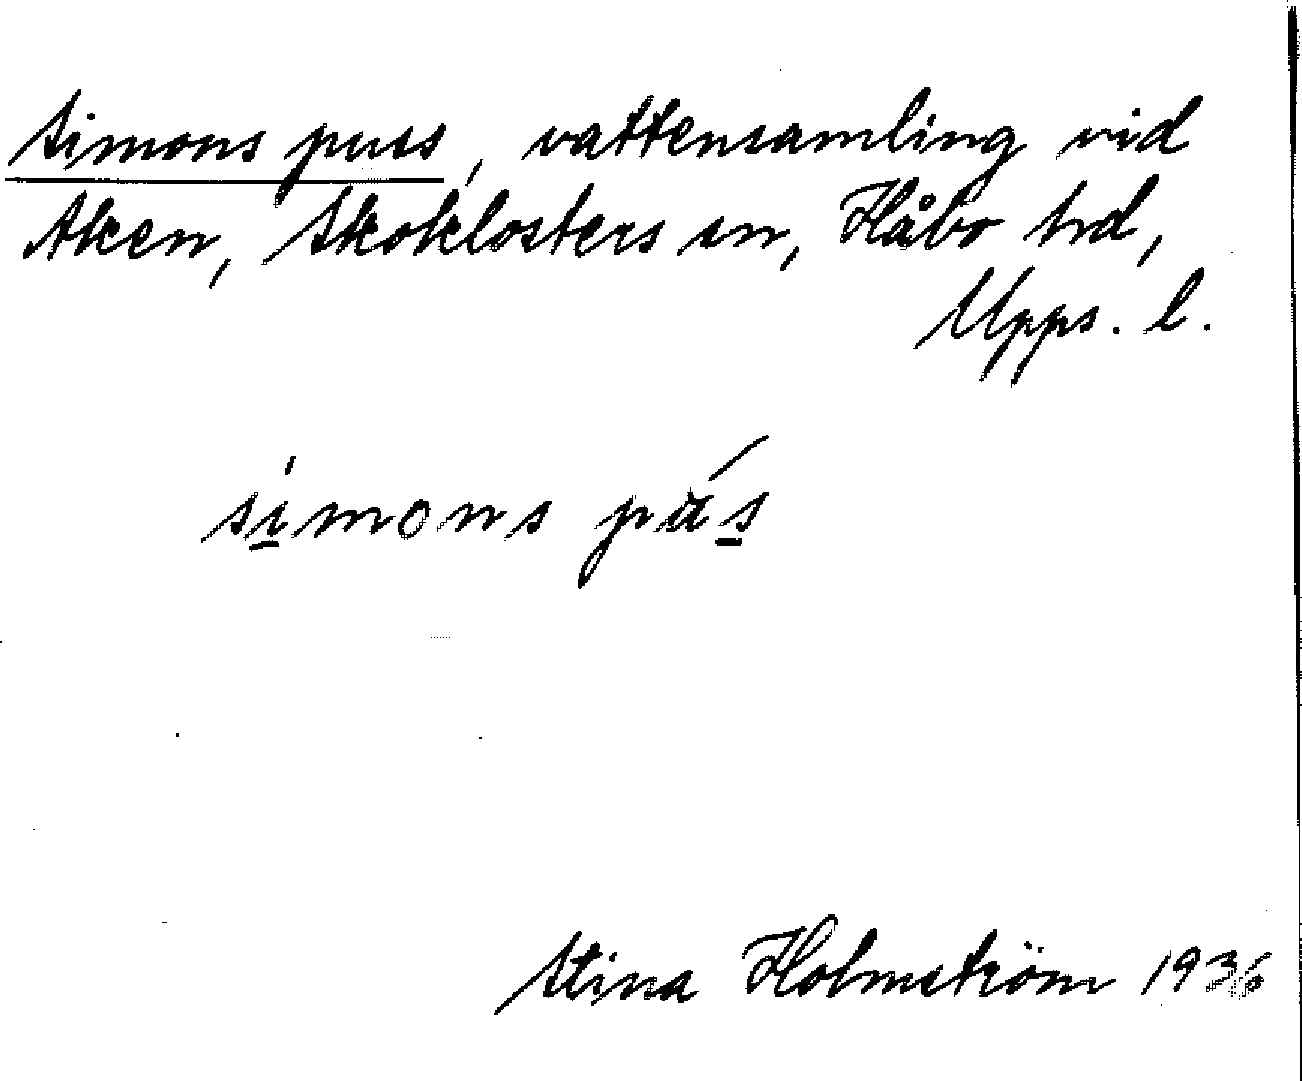 Simons puss, vattensamling vid
Aken, Skoklosters sn, Håbo hd,
Upps. l.
simons pus
Stina Holmström 1936